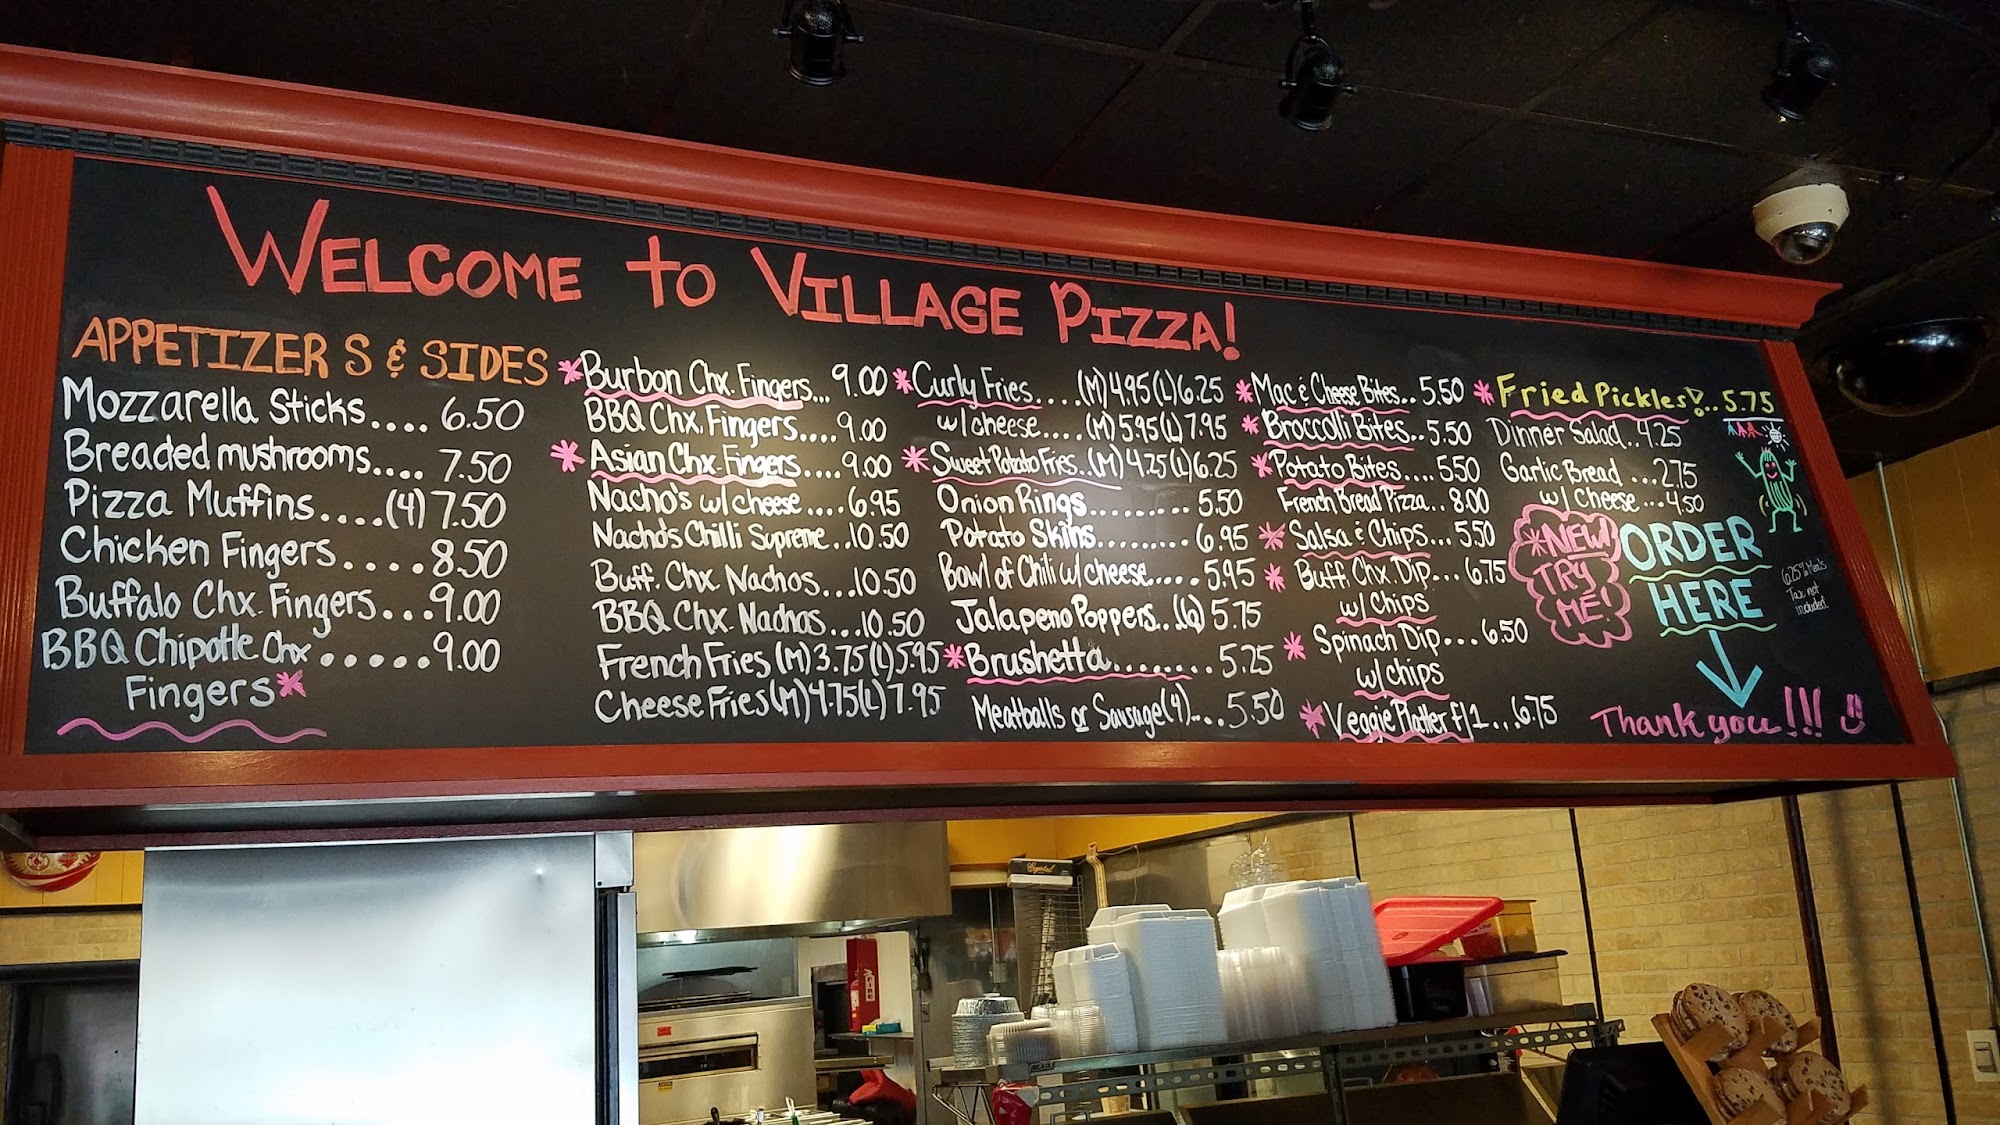 WELCOME TO VILLAGE PIZZA!
APPETIZERS & SIDES
Mozzarella Sticks.... 6.50
Breaded mushrooms.... 7.50
Pizza Muffins....(4) 7.50
Chicken Fingers....8.50
Buffalo Chx. Fingers...9.00
BBQ Chipotle Chx.....9.00
Fingers*
*Burbon Chx. Fingers... 9.00
BBQ Chx. Fingers....9.00
*Asian Chx. Fingers....9.00
Nacho's w/ cheese....6.95
Nacho's Chilli Supreme..10.50
Buff. Chx Nachos...10.50
BBQ Chx. Nachos...10.50
French Fries (M) 3.75 (L) 5.95
Cheese Fries (M) 4.75 (L) 7.95
*Curly Fries....(M) 4.95 (L) 6.25
w/ cheese....(M) 5.95 (L) 7.95
*Sweet Potato Fries..(M) 4.25 (L) 6.25
Onion Rings......... 5.50
Potato Skins.........6.95
Bowl of Chili w/ cheese..... 5.95
Jalapeno Poppers..(6) 5.75
*Brushetta......... 5.25
Meatballs or Sausage (4)....5.50
*Mac & Cheese Bites.. 5.50
*Broccolli Bites..5.50
*Potato Bites.... 5.50
French Bread Pizza.. 8.00
*Salsa & Chips... 5.50
*Buff. Chx. Dip... 6.75
w/ Chips
*Spinach Dip... 6.50
w/ chips
*Veggie Platter f/1... 6.75
*Fried Pickles!... 5.75
Dinner Salad..4.25
Garlic Bread ...2.75
w/ cheese...4.50
*NEW!
TRY
ME!
ORDER
HERE
6.25% Meals
Tax not
included
Thank you!!!
FIRE